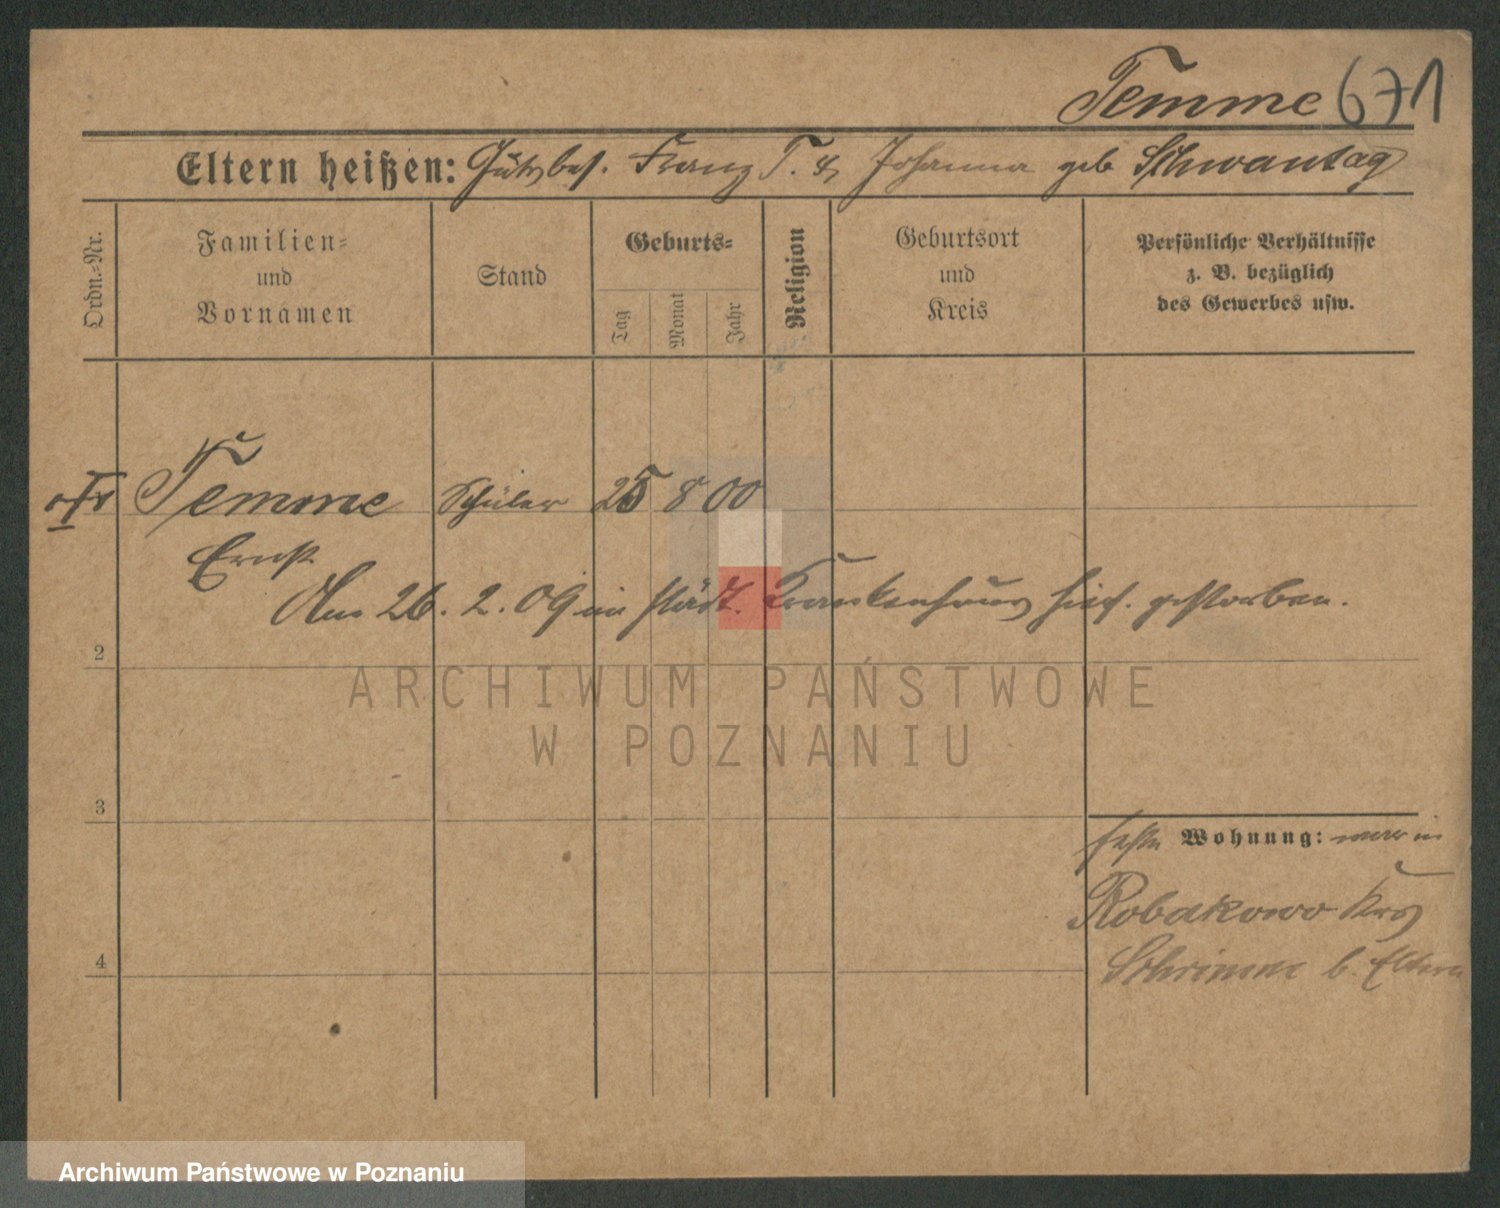 Temme 671
Eltern heißen: Gutsbes. Franz T. & Johanna geb Schwantag
Ordn.-Nr.
Familien-
und
Vornamen
Stand
Geburts-
Tag
Monat
Jahr
Religion
Geburtsort
und
Kreis
Persönliche Verhältnisse
z. B. bezüglich
des Gewerbes usw.
Temme Schüler 25 8 00
Ernst
Am 26. 2. 09 im städt. Krankenhaus hies. gestorben.
2
ARCHIWUM PAŃSTWOWE
W POZNANIU
3
feste Wohnung: war in
Robakowo Krs
Schrimm b. Eltern
4
Archiwum Państwowe w Poznaniu